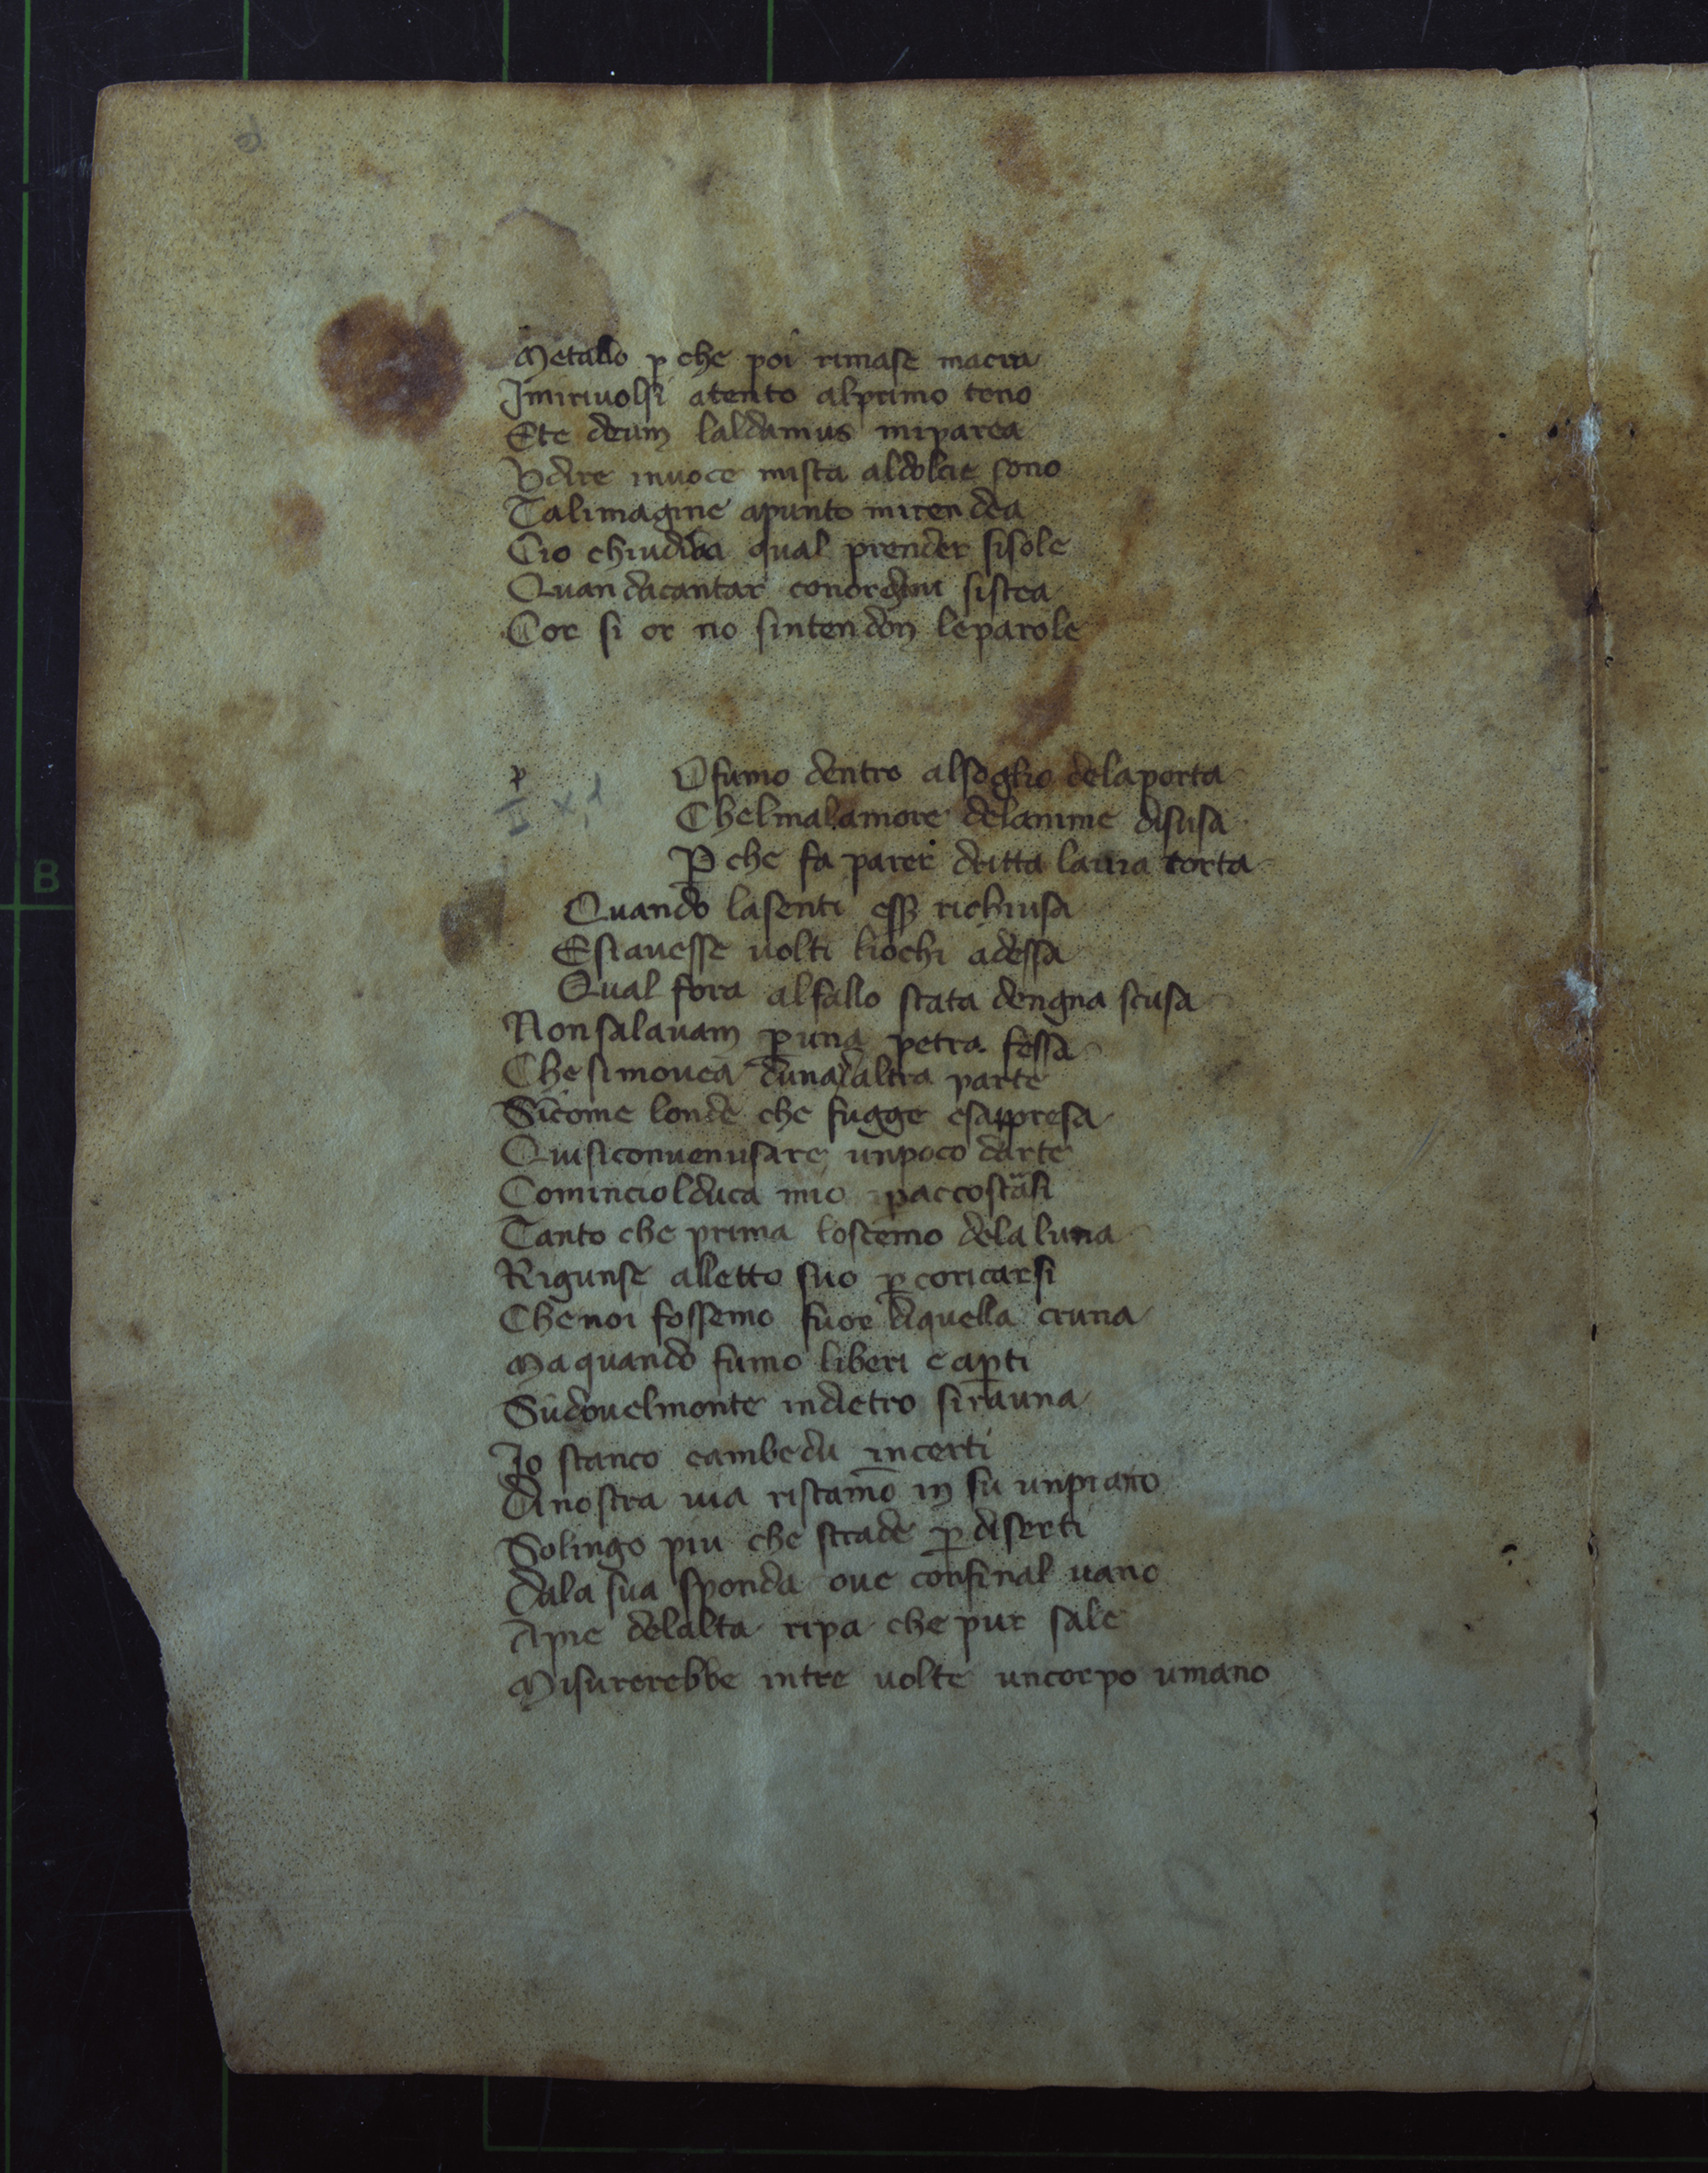 Metallo p che poi rimase macra
Jmiriuolsi atento alprimo tono
Ete deum laldamus miparea
Vdire inuoce mista aldolcie sono
Talimagine apunto mirendea
Cio chiudiua qual prender sisole
Quandacantar conorgani sistea
Cor si or no sintendon leparole
Ofumo dentro alsoglio delaporta
Chelmalamore delanime disusa
P che fa parer dritta lauia torta
Quando lasenti essr richiusa
Esiauesse uolti liochi adessa
Qual fora alfallo stata dengna scusa
Nonsalauam p una petra fessa
Chesimouea duna daltra parte
Sicome londe che fugge esappresa
Quisiconuenusare unpoco darte
Cominciolduca mio paccostarsi
Tanto che prima loscemo delaluna
Rigunse alletto suo p coricarsi
Chenoi fossemo fuor diquella cruna
Maquando fumo liberi e apti
Sudouelmonte indietro sirauna
Jo stanco eambedu incerti
Dinostra uia ristamo in su unpiano
Solingo piu che strade p diserti
Dala sua sponda oue confinal uano
Apie delalta ripa che pur sale
Misurerebbe intre uolte uncorpo umano
B